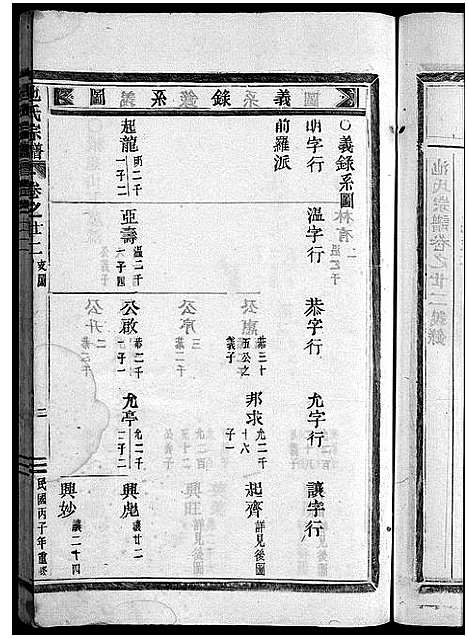 義錄系圖
○義錄系圖
明字行
溫字行
恭字行
允字行
讓字行
前羅派
公爲
恭三十
五公之
義子
邦求
允二千
十六
子一
起齊
詳見後圖
起龍
明二千
一子二
亞壽
溫二千
一子四
公啟
恭二千
一子一
允亭
允二千
一子二
興彪
讓廿二
興妙
讓二十四
池氏宗譜
卷之廿二
支圖
三
民國丙子年重修
池氏宗譜卷之廿二義錄